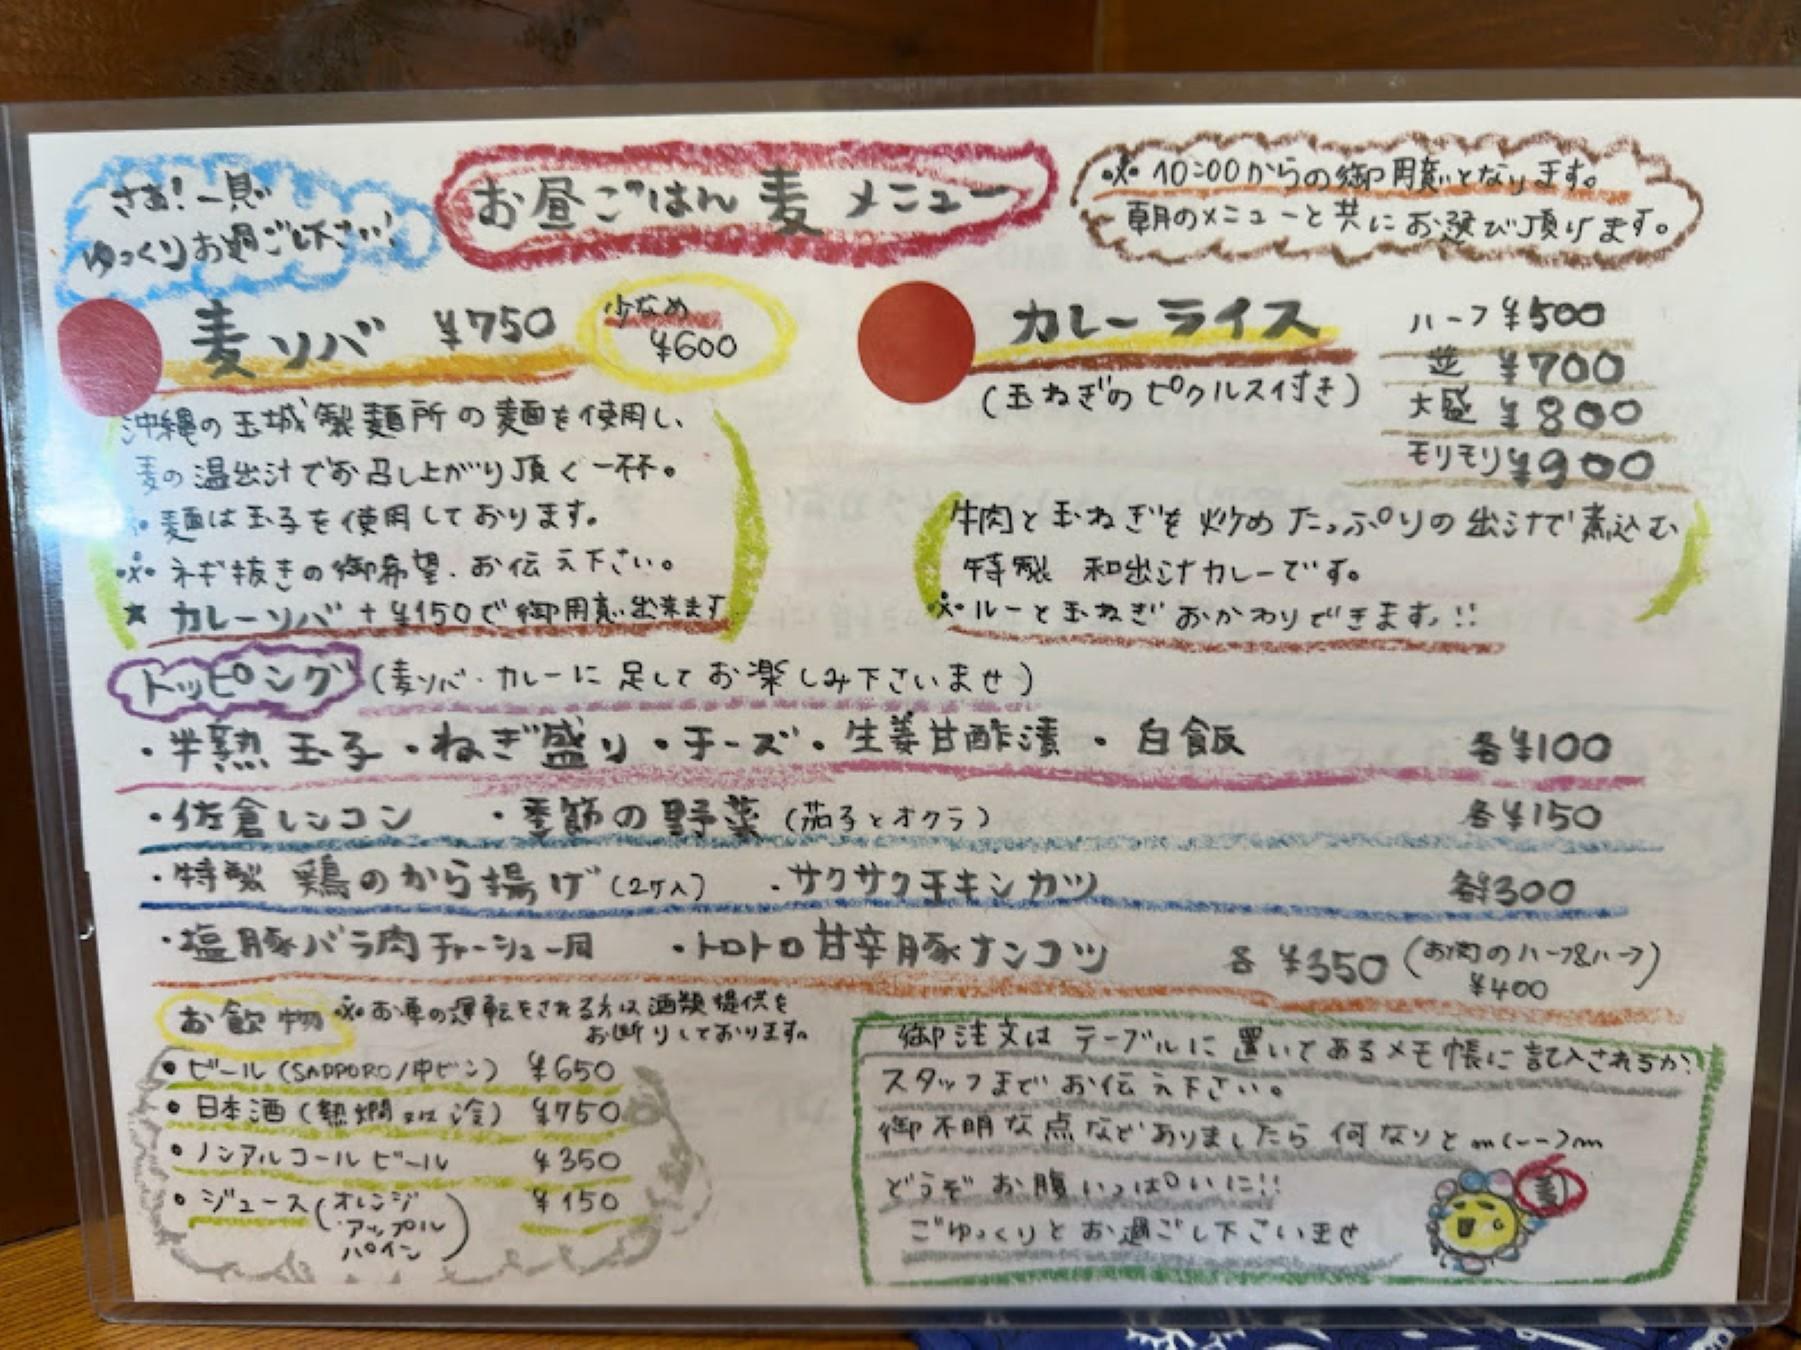 さあ!一息
ゆっくりお過ごし下さい!
お昼ごはん 麦 メニュー
※10:00からの御用意となります。
朝のメニューと共にお選び頂けます。
麦ソバ ¥750
少なめ
¥600
沖縄の玉城製麺所の麺を使用し、
麦の温出汁でお召し上がり頂く一杯。
※麺は玉子を使用しております。
※ネギ抜きの御希望、お伝え下さい。
★カレーソバ+¥150で御用意出来ます
カレーライス
(玉ねぎのピクルス付き)
ハーフ ¥500
並 ¥700
大盛 ¥800
モリモリ ¥900
牛肉と玉ねぎを炒めたっぷりの出汁で煮込む
特製 和出汁カレーです。
※ルーと玉ねぎおかわりできます。!!
トッピング (麦ソバ・カレーに足してお楽しみ下さいませ)
・半熟玉子・ねぎ盛り・チーズ・生姜甘酢漬・白飯 各¥100
・佐倉レンコン ・季節の野菜(茄子とオクラ) 各¥150
・特製 鶏のから揚げ(2ケ入) ・サクサクチキンカツ 各¥300
・塩豚バラ肉チャーシュー風 ・トロトロ甘辛豚ナンコツ 各¥350 (お肉のハーフ&ハーフ)
¥400
お飲物 ※お車の運転をされる方は酒類提供を
お断りしております。
・ビール(SAPPORO/中ビン) ¥650
・日本酒(熱燗又は冷) ¥750
・ノンアルコールビール ¥350
・ジュース(オレンジ ¥150
・アップル
パイン)
御注文はテーブルに置いてあるメモ帳に記入されるか、
スタッフまでお伝え下さい。
御不明な点などありましたら何なりとm(--)m
どうぞお腹いっぱいに!!
ごゆっくりとお過ごし下さいませ
麦